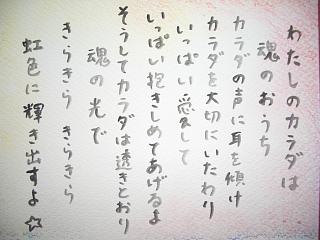 わたしのカラダは
魂のおうち
カラダの声に耳を傾け
カラダを大切にいたわり
いっぱい愛して
いっぱい抱きしめてあげるよ
そうしてカラダは透きとおり
魂の光で
きらきら きらきら
虹色に輝き出すよ☆